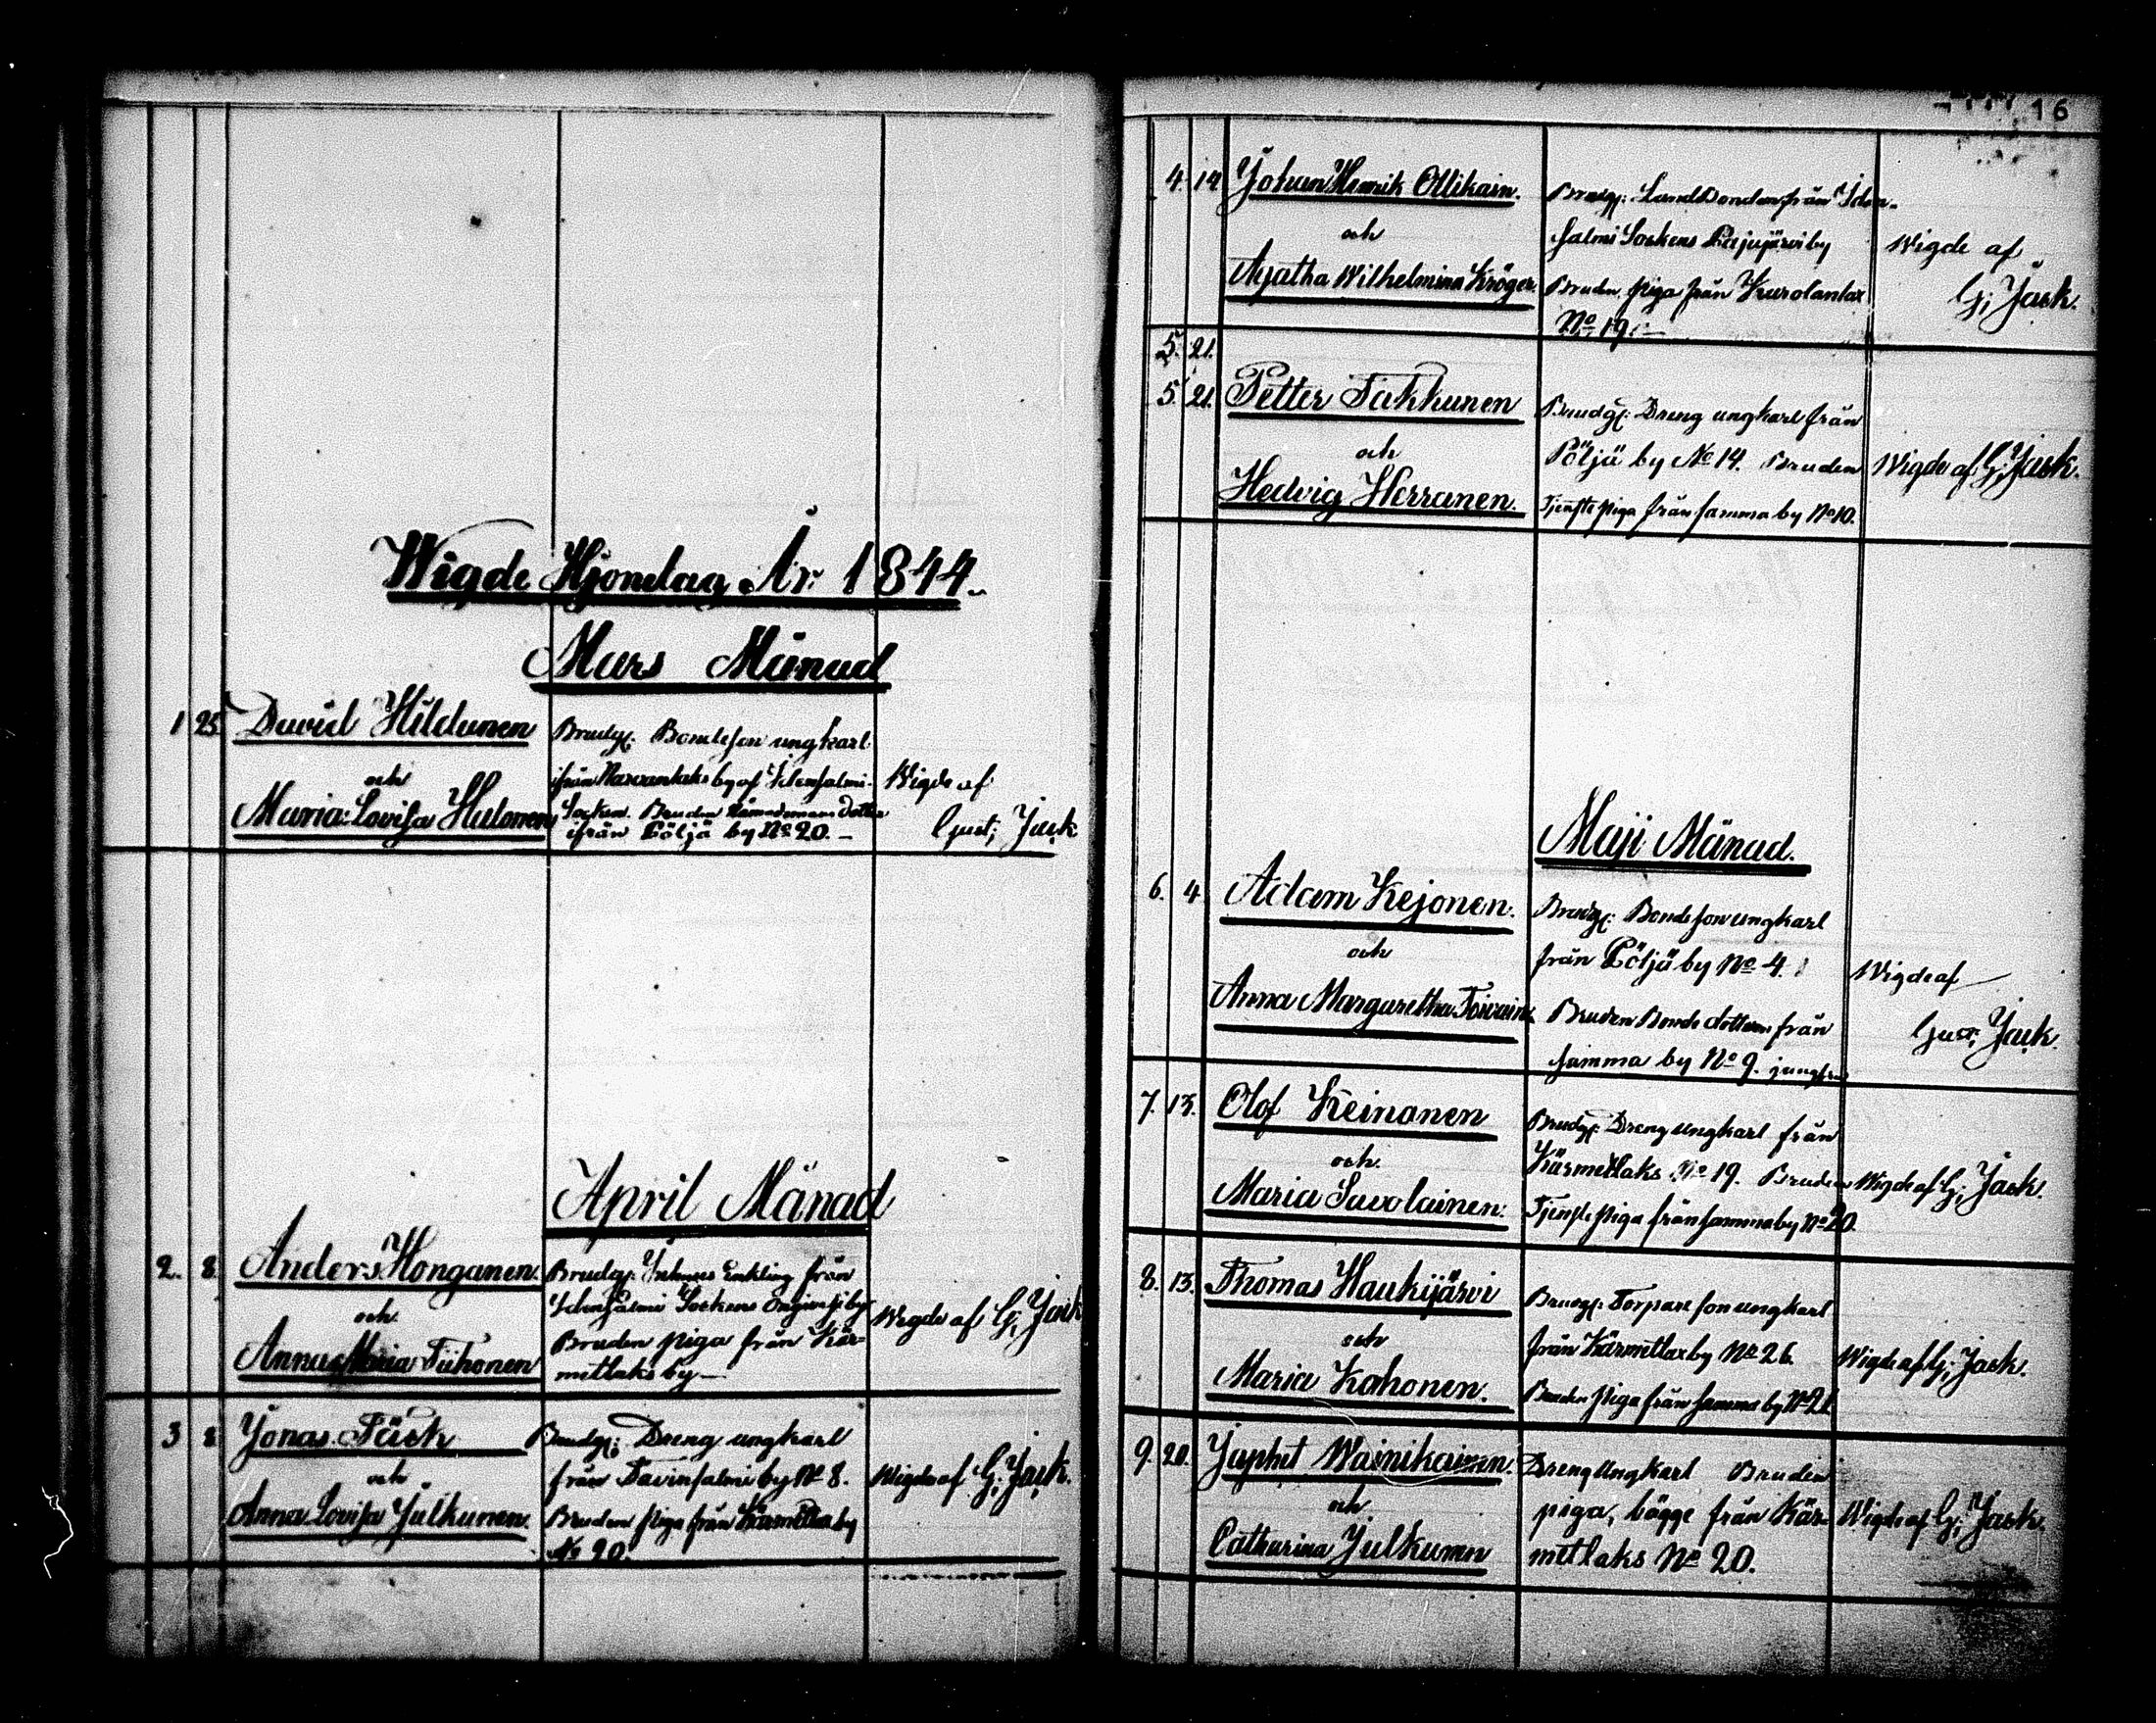 Wigde Hjonelag År 1844.
Mars Månad
1 25 David Hildunen
och
Maria Lovisa Hulonen
Brudg: Bondeson ungkarl
ifrån Narvantaks by af Idensalmi
Socken. Bruden Nämndemans Dotter
ifrån Pöljä by No 20. —
Wigde af
Gust; Jack
April Månad
2. 8. Anders Honganen
och
Anna Maria Tiihonen
Brudg: Enkling från
Idensalmi Sockens by
Bruden piga från Kär=
mtlaks by —
Wigde af G; Jack
3 8 Jonas Jäck
och
Anna Lovisa Julkunen
Brudg: Dreng ungkarl
från Tavinsalmi by No 8.
Bruden piga från Kärmtla by
No 20.
Wigde af G; Jack.
16
4. 14 Johan Henrik Ollikain.
och
Agatha Wilhelmina Kröger.
Brudg: LandBonden från Iden-
salmi Sockens Pajujärvi by
Bruden piga från Kurolanlax
No 19. —
Wigde af
G; Jack.
5. 21.
5. 21. Petter Takkunen
och
Hedvig Herranen.
Brudg: Dreng ungkarl från
Pöljä by No 14. Bruden
Tjenste piga från samma by No 10.
Wigde af G; Jack.
Maji Månad.
6. 4. Adam Kejonen.
och
Anna Margaretha Toivain
Brudg: Bondeson ungkarl
från Pöljä by No 4.
Bruden Bonde dotteren från
samma by No 9. jungfru
Wigde af
Gust; Jack.
7. 13. Olof Keinonen
och.
Maria Savolainen.
Brudg: Dreng ungkarl från
Kärmetlaks No 19. Bruden
Tjenste piga från samma by No 20.
Wigde af G; Jack.
8. 13. Thomas Haukijärvi
och
Maria Kohonen.
Brudg: Torpare son ungkarl
från Kärmetlax by No 26.
Bruden piga från samma by No 21.
Wigde af G; Jack.
9. 20. Japhet Wainikainen
och
Catharina Julkunen
Dreng Ungkarl Bruden
piga, bägge från Kär-
mtlaks No 20.
Wigde af G; Jack.